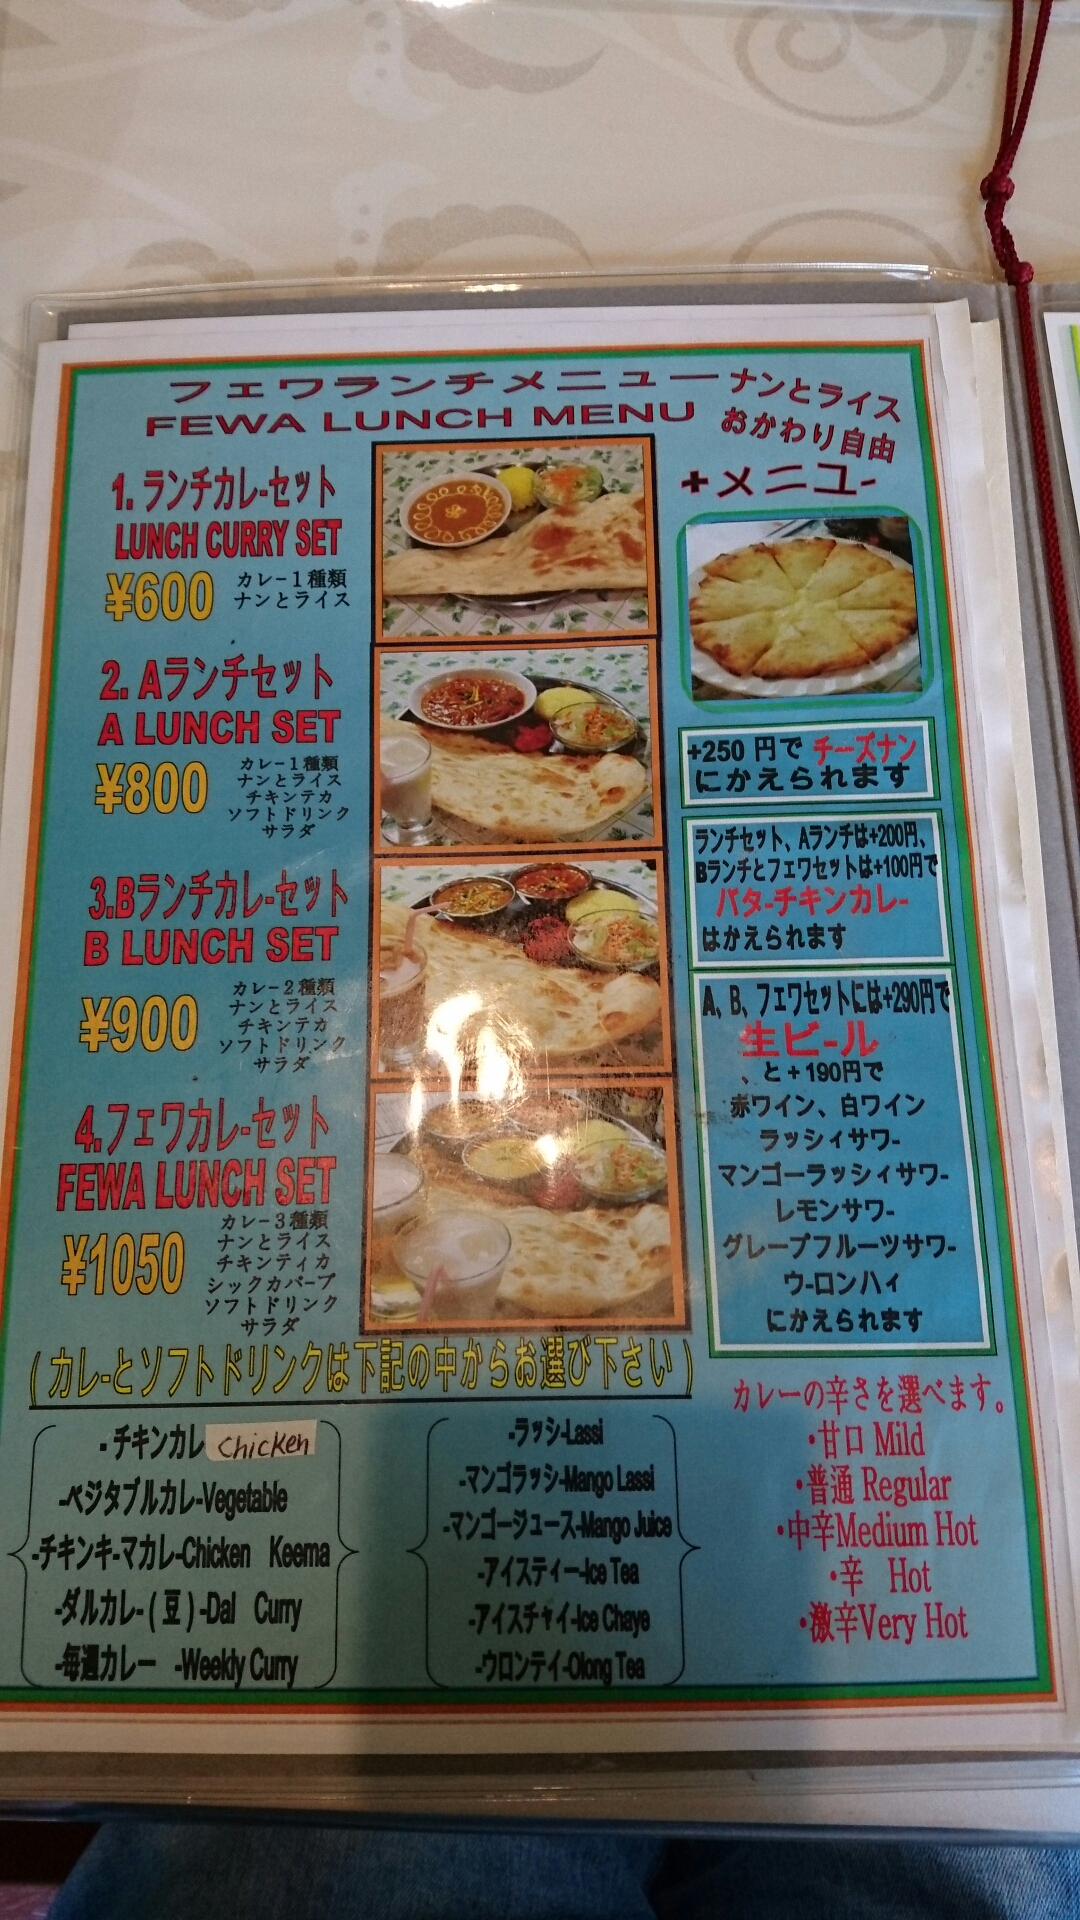 フェワランチメニュー
FEWA LUNCH MENU
ナンとライス
おかわり自由
1. ランチカレ-セット
LUNCH CURRY SET
¥600
カレ-1種類
ナンとライス
2. Aランチセット
A LUNCH SET
¥800
カレ-1種類
ナンとライス
チキンテカ
ソフトドリンク
サラダ
3.Bランチカレ-セット
B LUNCH SET
¥900
カレ-2種類
ナンとライス
チキンテカ
ソフトドリンク
サラダ
4.フェワカレ-セット
FEWA LUNCH SET
¥1050
カレ-3種類
ナンとライス
チキンティカ
シックカバーブ
ソフトドリンク
サラダ
+メニュ-
+250 円で チーズナン
にかえられます
ランチセット、Aランチは+200円、
Bランチとフェワセットは+100円で
バタ-チキンカレ-
はかえられます
A、B、フェワセットには+290円で
生ビ-ル
、と+190円で
赤ワイン、白ワイン
ラッシィサワ-
マンゴーラッシィサワ-
レモンサワ-
グレープフルーツサワ-
ウ-ロンハィ
にかえられます
(カレ-とソフトドリンクは下記の中からお選び下さい)
-チキンカレ Chicken
-ベジタブルカレ-Vegetable
-チキンキ-マカレ-Chicken Keema
-ダルカレ-(豆)-Dal Curry
-毎週カレー -Weekly Curry
-ラッシ-Lassi
-マンゴラッシ-Mango Lassi
-マンゴージュース-Mango Juice
-アイスティー-Ice Tea
-アイスチャイ-Ice Chaye
-ウロンテイ-Olong Tea
カレーの辛さを選べます。
・甘口 Mild
・普通 Regular
・中辛Medium Hot
・辛 Hot
・激辛Very Hot